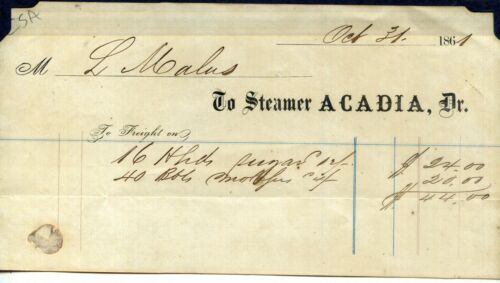 CSA
Oct 31. 1861
M L Malus
To Steamer ACADIA, Dr.
To Freight on
16 Hhds sugar $ 24.00
40 Bbls molasses 20.00
$ 44.00